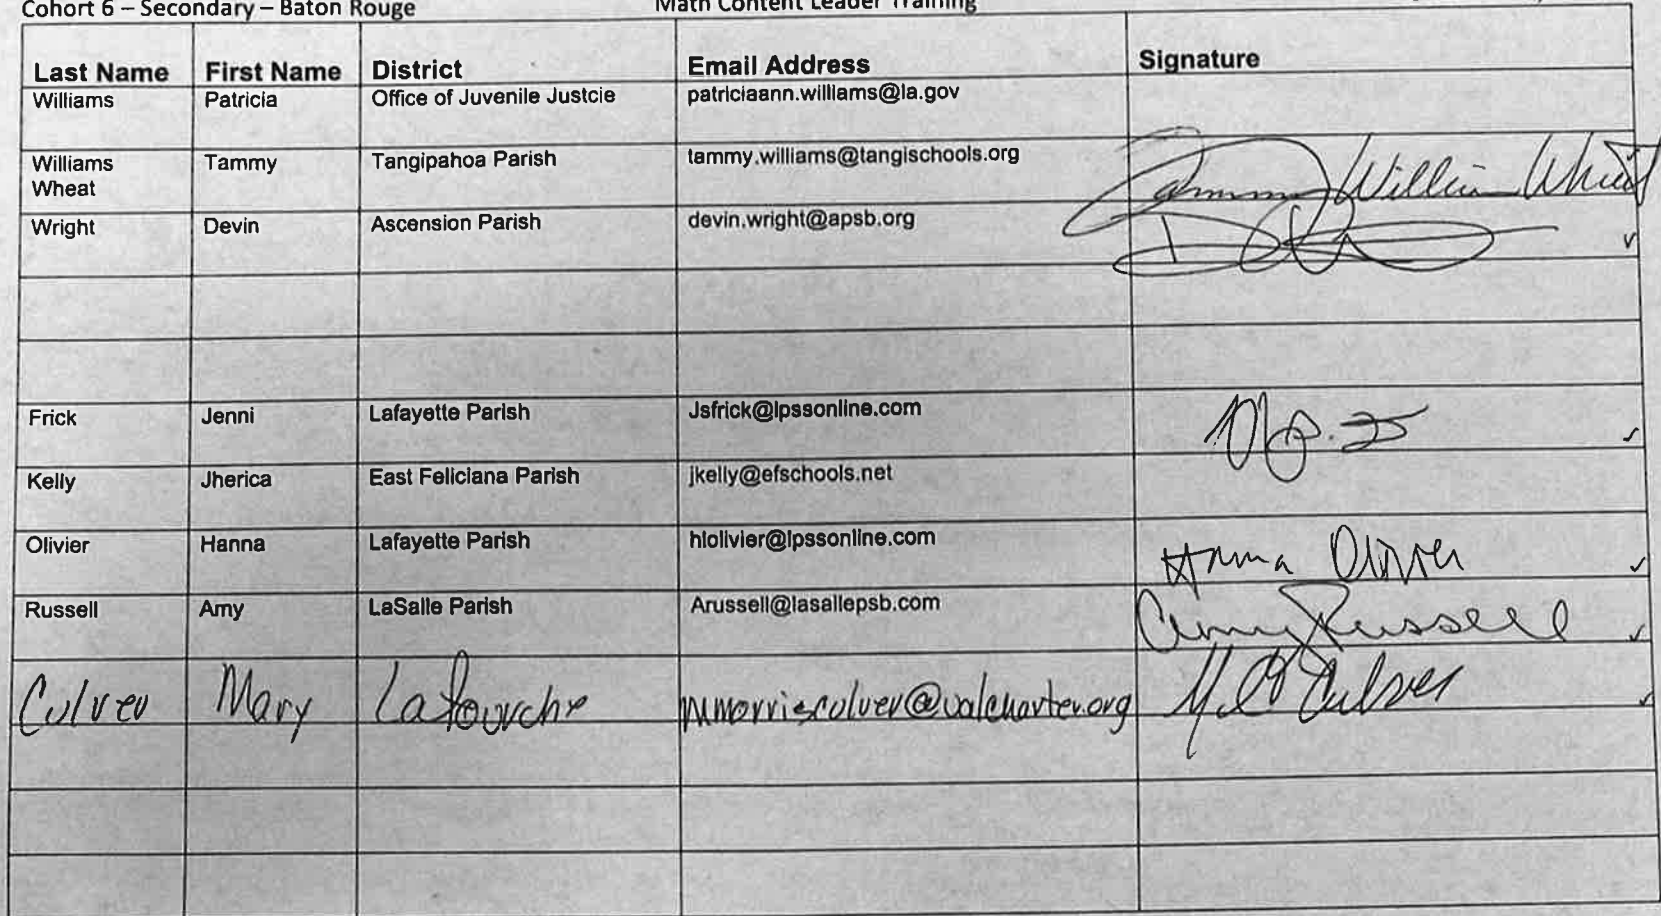 Cohort 6 – Secondary – Baton Rouge Math Content Leader Training
Last Name First Name District Email Address Signature
Williams Patricia Office of Juvenile Justcie patriciaann.williams@la.gov
Williams Tammy Tangipahoa Parish tammy.williams@tangischools.org Tammy Williams Wheat
Wheat
Wright Devin Ascension Parish devin.wright@apsb.org
Frick Jenni Lafayette Parish Jsfrick@lpssonline.com
Kelly Jherica East Feliciana Parish jkelly@efschools.net
Olivier Hanna Lafayette Parish hlolivier@lpssonline.com Hanna Olivier
Russell Amy LaSalle Parish Arussell@lasallepsb.com Amy Russell
Culver Mary Lafourche mmorrisculver@valcharter.org Culver